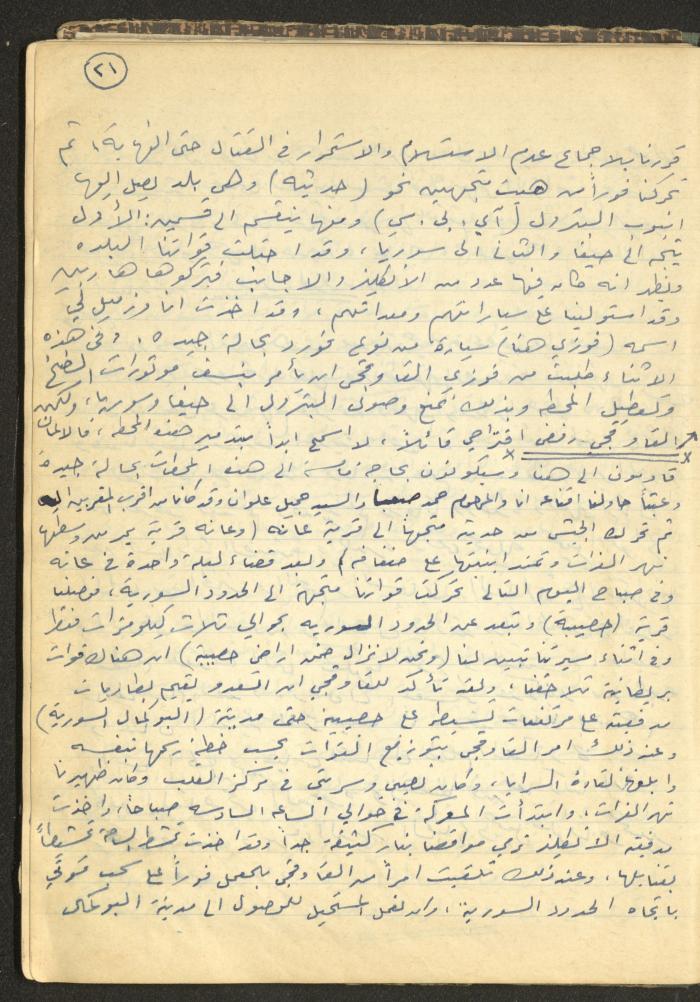 ٢١
قررنا بالاجماع عدم الاستسلام والاستمرار في القتال حتى النهاية، ثم
تحركنا فوراً من هيت متجهين نحو (حديثه) وهي بلد يصل اليها
انبوب البترول (آي. بي. سي) ومنها ينقسم الى قسمين: الأول
يتجه الى حيفا والثاني الى سوريا، وقد احتلت قواتنا البلده
ويظهر انه كان فيها عدد من الانكليز والاجانب فتركوها هاربين
وقد استولينا على سياراتهم ومعداتهم، وقد اخذت انا وزميل لي
اسمه (فوزي هنا) سيارة من نوع فورد بحالة جيده. وفي هذه
الاثناء طلبت من فوزي القاوقجي ان يأمر بنسف موتورات الضخ
وتعطيل المحطه وبذلك نمنع وصول البترول الى حيفا وسوريا، ولكن
القاوقجي رفض اقتراحي قائلاً، لا اسمح ابداً بتدمير هذه المحطه، فالالمان
قادمون الى هنا وسيكونون بحاجة ماسة الى هذه المحطات بحالة جيدة
وعبثاً حاولنا اقناعه انا والمرحوم حمد صعب والسيد جميل علوان وقد كانا من اقرب المقربين اليه
ثم تحرك الجيش من حديثة متجهاً الى قرية عانه (وعانه قرية يمر من وسطها
نهر الفرات وتمتد ابنيتها على ضفافه) وبعد قضاء ليلة واحدة في عانه
وفي صباح اليوم التالي تحركت قواتنا متجهة الى الحدود السورية، فوصلنا
قرية (حصيبه) وتبعد عن الحدود السوريه بحوالي ثلاث كيلومترات فقط
وفي اثناء مسيرتنا تبين لنا (ونحن لا نزال ضمن اراضي حصيبة) ان هناك قوات
بريطانية تلاحقنا، ولقد تأكد للقاوقجي ان العدو يقيم بطاريات
مدفعيته على مرتفعات تسيطر على حصيبة حتى مدينة (البوكمال السورية)
وعند ذلك امر القاوقجي بتوزيع القوات بحسب خطة رسمها بنفسه
وابلغها لقادة السرايا، وكان نصيبي وسريتي في مركز القلب وكان ظهيرنا
نهر الفرات، وابتدأت المعركة في حوالي الساعه السادسه صباحاً، واخذت
مدفعية الانكليز ترمي مواقعنا بنار كثيفة جداً وقد اخذت تمشط الساحة تمشيطاً
بقنابلها، وعند ذلك تلقيت امراً من القاوقجي بالعمل فوراً على سحب قوتي
باتجاه الحدود السورية، وان نعمل المستحيل للوصول الى مدينة البوكمال